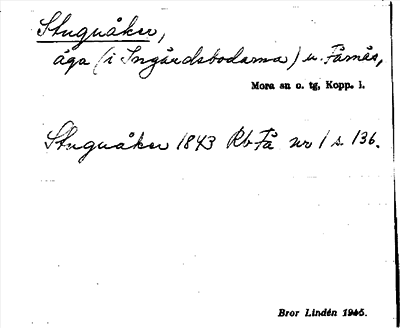 Stuguåker,
åga (i Ingärdsbodarna) u. Färnäs,
Mora sn o. tg, Kopp. l.
Stuguåker 1843 Rb Få nr 1 s. 136.
Bror Lindén 1945.